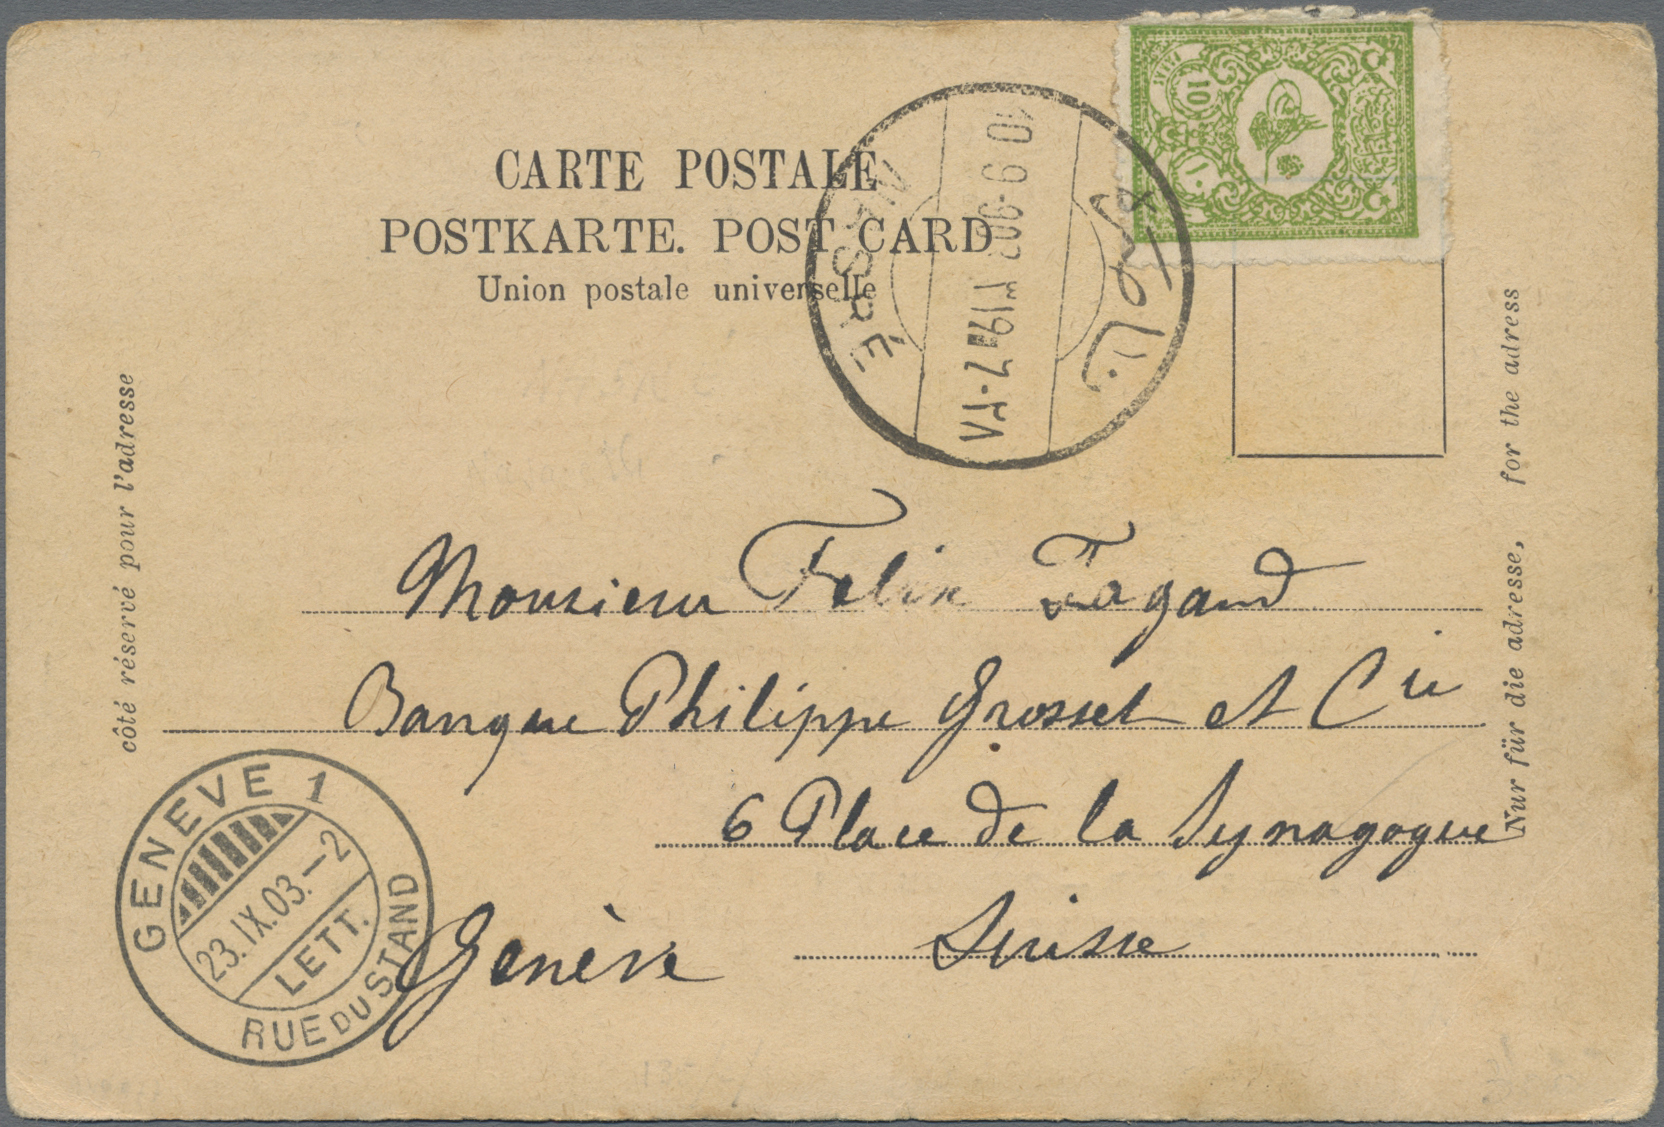 CARTE POSTALE
POSTKARTE. POST CARD
Union postale universelle
10
١٠
10 9 903
ناصره
côté réservé pour l'adresse
Nur für die adresse, for the adress
Monsieur Felix Fagand
Banque Philippe Grosset et Cie
6 Place de la Synagogue
Genève Suisse
GENEVE 1
23.IX.03.–2
LETT.
RUE DU STAND